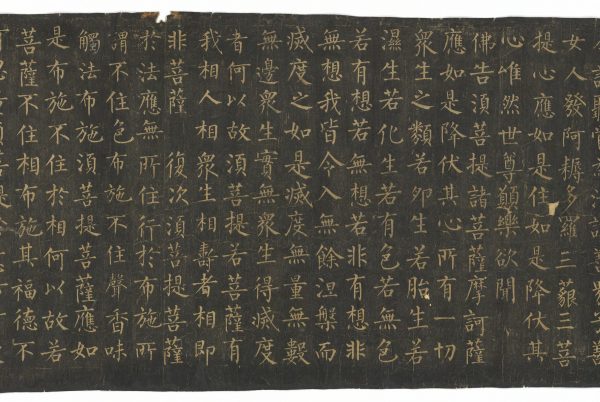 女人發阿耨多羅三藐三菩
提心應如是住如是降伏其
心唯然世尊願樂欲聞
佛告須菩提諸菩薩摩訶薩
應如是降伏其心所有一切
眾生之類若卵生若胎生若
濕生若化生若有色若無色
若有想若無想若非有想非
無想我皆令入無餘涅槃而
滅度之如是滅度無量無數
無邊眾生實無眾生得滅度
者何以故須菩提若菩薩有
我相人相眾生相壽者相即
非菩薩 復次須菩提菩薩
於法應無所住行於布施所
謂不住色布施不住聲香味
觸法布施須菩提菩薩應如
是布施不住於相何以故若
菩薩不住相布施其福德不